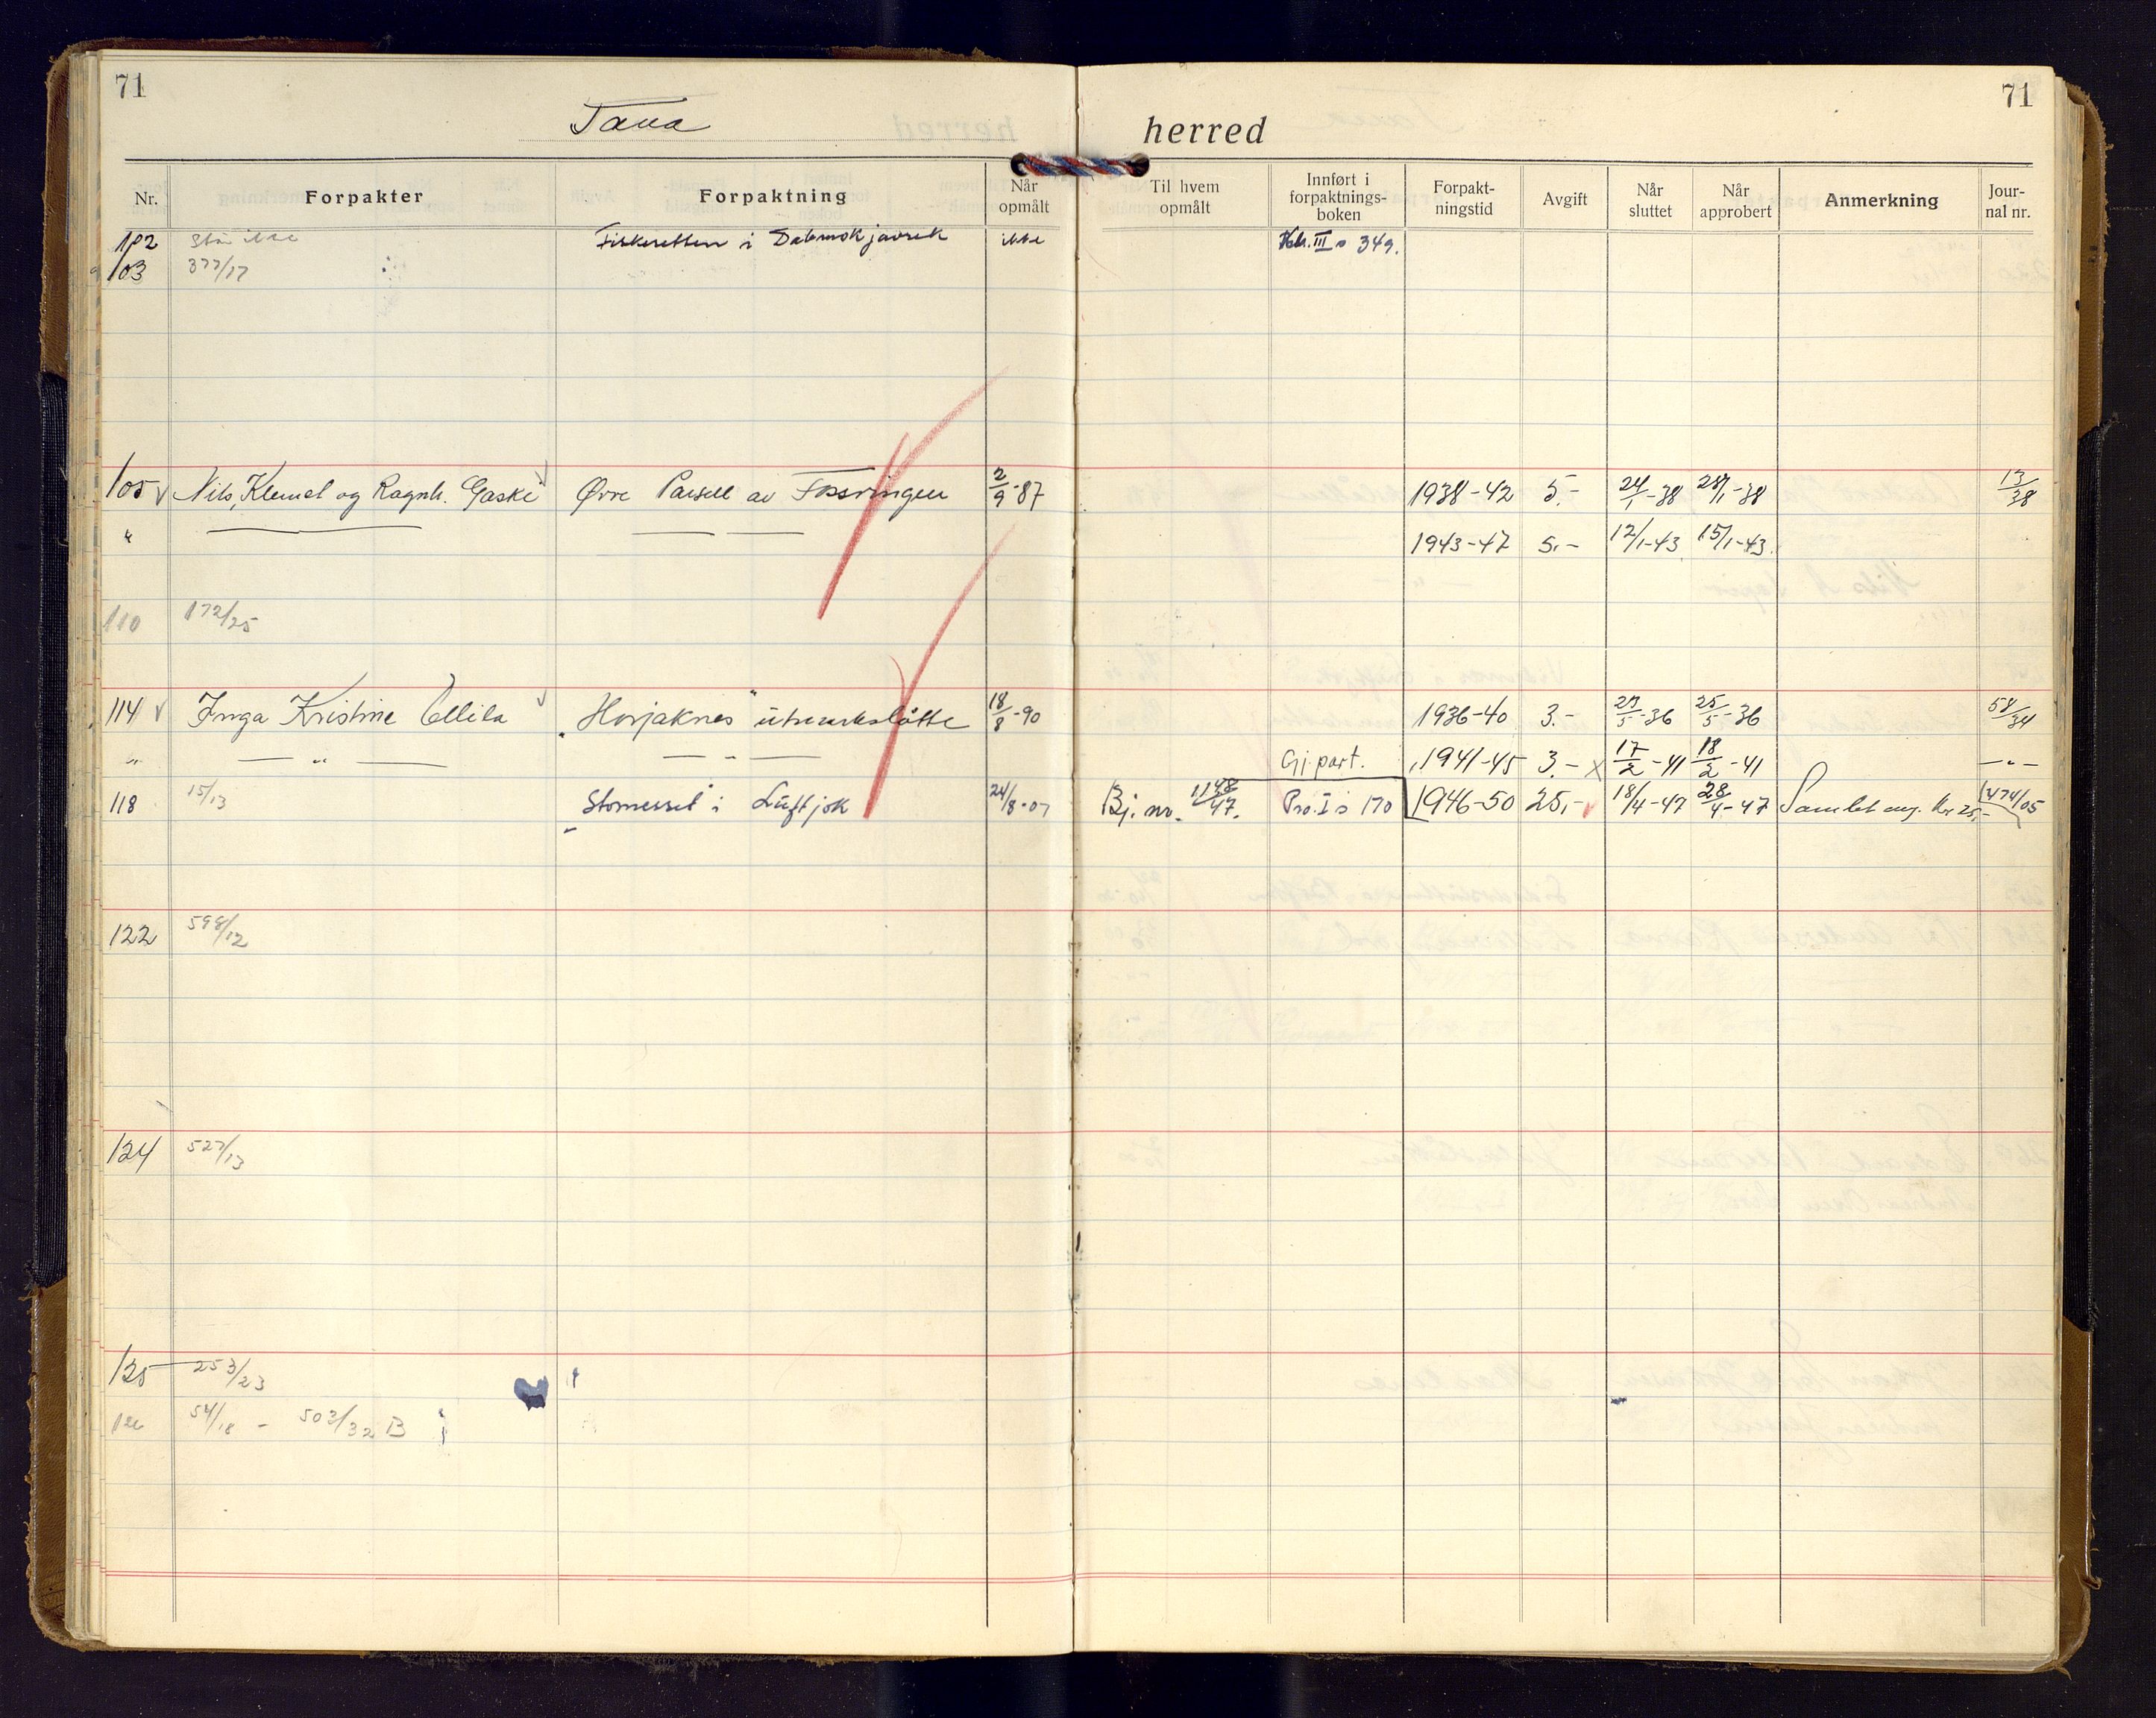 71 71
Tana herred
Nr. Forpakter Forpaktning Når opmålt Til hvem opmålt Innført i forpaktnings-boken Forpakt-ningstid Avgift Når sluttet Når approbert Anmerkning Jour-nal nr.
102 Står ikke Fiskeretten i ikke III s 349.
103 377/17
105 √ Nils, Klemet og Ragnh. Gaski Øvre Parsell av Fossringen 2/9-87 1938-42 5.- 24/1-38 28/1-38 13/38
" 1943-47 5.- 12/1-43 15/1-43
110 172/25
114 √ Inga Kristine Ollila "Horjaknes" utmarkslåtte 18/8-90 1936-40 3.- 23/5-36 25/5-36 58/34
" — " — — " — Gj. part. 1941-45 3.- x 17/2-41 18/2-41 — " —
118 15/13 "Stornesset" i Luftjok 24/8-07 Bj. nr. 1148/47. Pro. I s 170 1946-50 25,- 18/4-47 28/4-47 Samlet avg. kr 25,- 1474/05
122 598/12
124 527/13
125 253/23
54/18 - 503/32 B